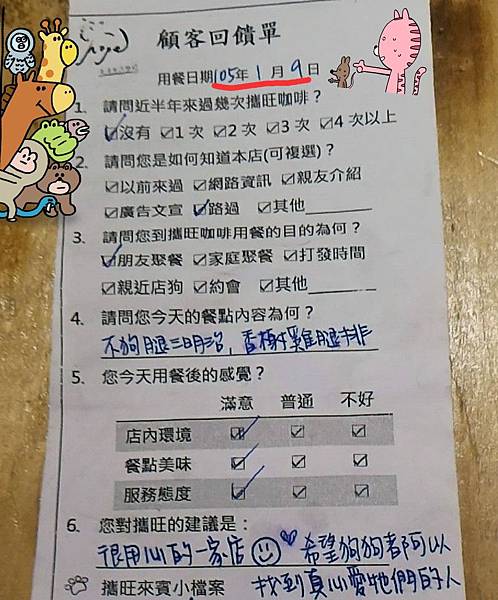 顧客回饋單
用餐日期105年1月9日
1. 請問近半年來過幾次攜旺咖啡？
☑沒有 ☑1 次 ☑2 次 ☑3 次 ☑4 次以上
2. 請問您是如何知道本店(可複選)？
☑以前來過 ☑網路資訊 ☑親友介紹
☑廣告文宣 ☑路過 ☑其他
3. 請問您到攜旺咖啡用餐的目的為何？
☑朋友聚餐 ☑家庭聚餐 ☑打發時間
☑親近店狗 ☑約會 ☑其他
4. 請問您今天的餐點內容為何？
不狗腿三明治，香榭雞腿排
5. 您今天用餐後的感覺？
滿意 普通 不好
店內環境 ☑ ☑ ☑
餐點美味 ☑ ☑ ☑
服務態度 ☑ ☑ ☑
6. 您對攜旺的建議是：
很用心的一家店 希望狗狗都可以
攜旺來賓小檔案 找到真心愛牠們的人